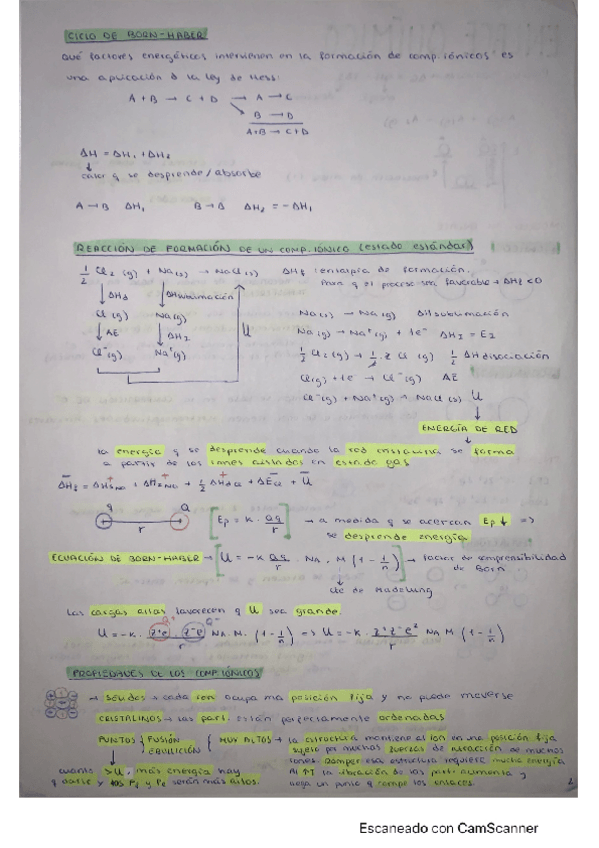 CICLO DE BORN-HABER
Qué factores energéticos intervienen en la formación de comp. iónicos es
una aplicación d la ley de Hess:
A + B → C + D → A → C
B → D
A+B → C+D
ΔH = ΔH₁ + ΔH₂
calor q se desprende/absorbe
A → B ΔH₁ B → D ΔH₂ = -ΔH₁
REACCIÓN DE FORMACIÓN DE UN COMP. IÓNICO (estado estándar)
1/2 Cl₂ (g) + Na(s) → NaCl(s) ΔHf: entalpía de formación.
Para q el proceso sea favorable → ΔHf < 0
ΔHd ΔHsublimación
Cl (g) Na(g)
AE ΔHI
Cl⁻(g) Na⁺(g)
U
Na(s) → Na(g) ΔHsublimación
Na(g) → Na⁺(g) + 1e⁻ ΔHI = EI
1/2 Cl₂(g) → 1/2 2 Cl (g) 1/2 ΔHdisociación
Cl(g) + 1e → Cl⁻(g) AE
Cl⁻(g) + Na⁺(g) → NaCl(s) U
ENERGÍA DE RED
La energía q se desprende cuando la red cristalina se forma
a partir de los iones aislados en estado gas
ΔHf = ΔHsNa + ΔHINa + 1/2 ΔHdCl + ΔECl + U
q Q
r
Ep = K · Qq/r → a medida q se acercan Ep ↓ =>
se desprende energía
ECUACIÓN DE BORN-HABER → U = -K Qq/r · NA · M (1 - 1/n) → factor de compresibilidad
de Born
cte de Madelung
Las cargas altas favorecen q U sea grande.
U = -K · Z⁺e · Z⁻e/r NA · M · (1 - 1/n) => U = -K · Z⁺Z⁻e²/r NA M (1 - 1/n)
PROPIEDADES DE LOS COMP. IÓNICOS
→ Sólidos → cada ion ocupa una posición fija y no puede moverse
CRISTALINOS → las part. están perfectamente ordenadas
PUNTOS FUSIÓN
EBULLICIÓN
MUY ALTOS → la estructura mantiene al ion en una posición fija
sujeto por muchas fuerzas de atracción de muchos
iones. Romper esa estructura requiere mucha energía
Al ↑T la vibración de las part. aumenta y
llega un punto q rompe los enlaces.
cuanto > U, más energía hay
q darle y los Pf y Pe serán más altos.
2
Escaneado con CamScanner